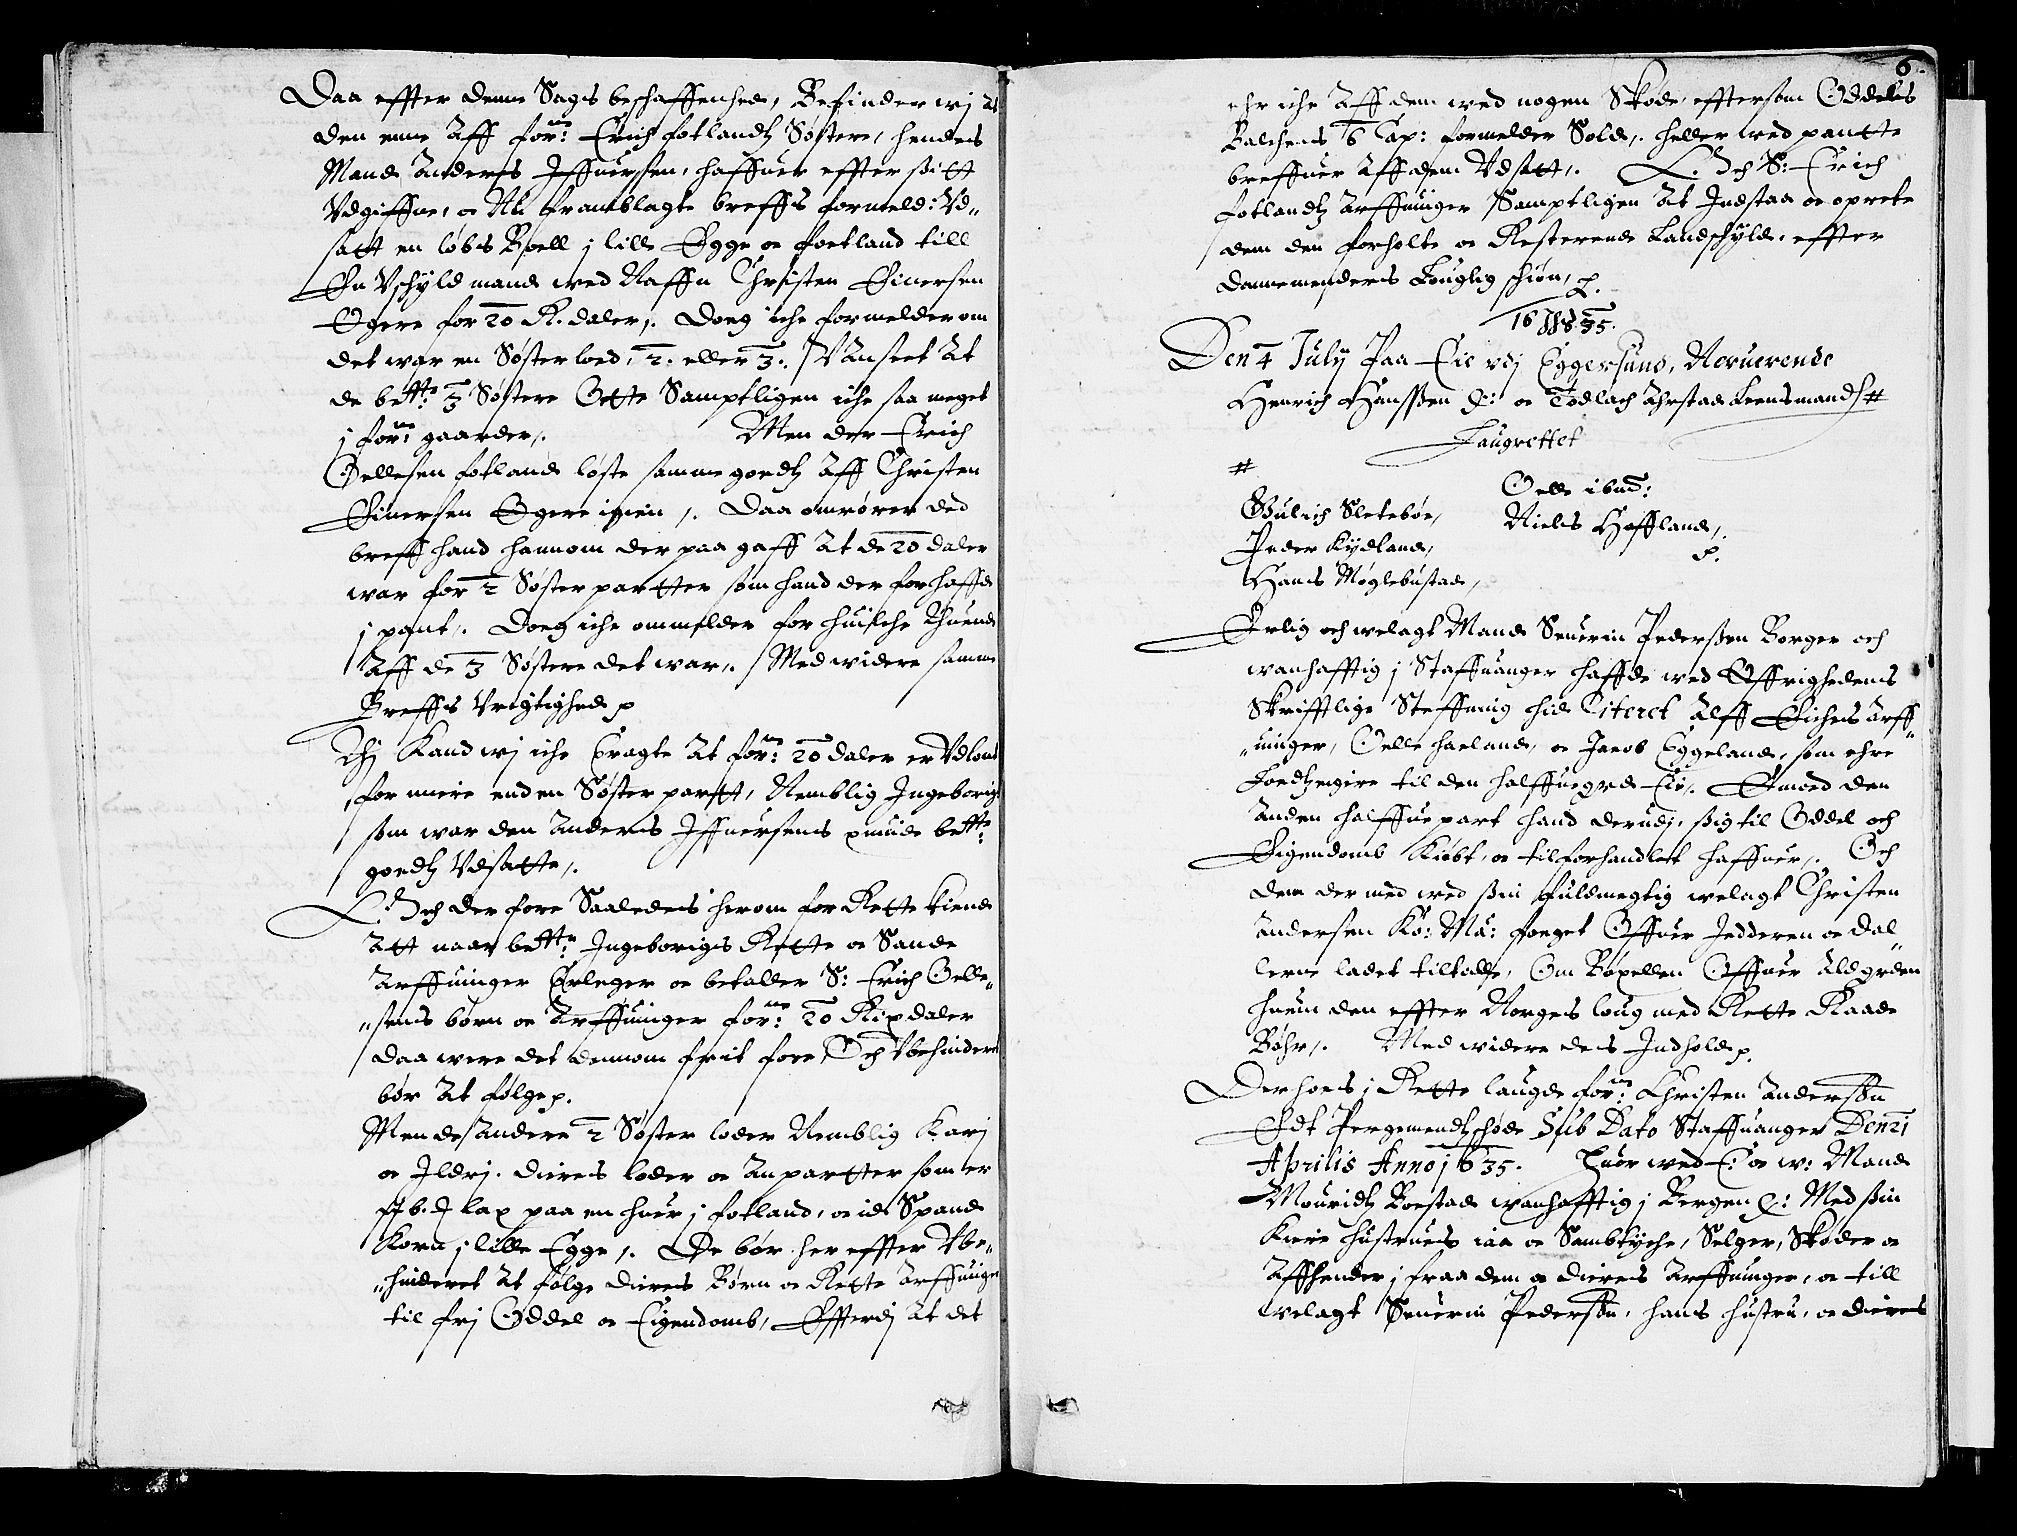 Daa effter denne Sags beschaffenhed, Befinder wj at
den enne aff for:ne Erich fotlandtz Søstere, hendes
Mand Anders Iffuersen, haffuer effter sitt
Vdgiffne, oc Nu framblagte breffs formeld: Vd„
satt en løbs Boell j lille Egge oc foetland till
En Vschyld mand wed Naffn Christen Einersen
Egere for 20 R. daler,. Dog iche formelder om
det war en Søsterloed, 2. eller 3. / Vanseet at
de be:tte 3 Søstere Otte Samptligen iche saa meget
j for:ne gaarder,. Men der Erich
Oellesen fotland løste samme goedtz aff Christen
Einersen Egere igien ,. Daa omrører ded
breff hand hannom der paa gaff at de 20 daler
war for 2 Søster partter som hand der for haffde
j pant,. Doeg iche ommelder for huilche thuende
aff de 3 Søstere det war,. / Med widere samme
Breffs Vrigtighed p
Thj Kand wj iche Eragte at for:ne 20 daler er Vdlont
for meere end en Søster partt, Nemblig Ingeborig,
som war den Anders Iffuersens quinde be:tte
goedtz Vdsatte,.
Och der fore Saaledes herom for Rette kiende
att naar be:tte Ingeborigs Rette oc Sande
arffuinger Erleger oc betaller S: Erich Oelle„
„sens børn oc arffuinger for:ne 20 Rixdaler
daa were det dennom frit fore, Och Vbehindert
bør at følge p.
Men de andere 2 Søster loder Nemblig Karj
oc Ildrj. dieres loder oc anpartter som er
lax paa en huer j fotland, oc id Spand
Korn j lille Egge ,. De bør her effter Vbe„
„hindert at følge dieres Børn oc Rette arffuinger
til frj Oddel oc Eigendomb, Effterdj at det
6.
ehr iche aff dem wed nogen Skøde, effter som Oddels
Balchens 16 Cap: formelder Sold,. heller wed pantte
breffuer aff dem Vdsatt,. Och S: Erich
fotlandtz arffuinger Samptligen at Indstaa oc oprete
dem den forholte oc Resterende Landschyld, effter
dannemenders Louglig schiøn, p.
16 35.
Den 4 Julij Paa Eie vdj Eggersund, Neruerende
Henrich Hanssen &: oc Todlach Arstad Leensmand #
Laugrettet
#
Gulich Sletebøe,
Peder Kydland,
Hans Møglebustad,
Oelle ibud:
Niels Hoffland,.
p.
Erlig och welagt Mand Seuerin Pederssen Borger och
wanhafftig j Staffuanger haffde wed Øffrighedens
Skrifftlige Steffning hid Citeret Alff Eiches arff„
„uinger, Oelle haeland, oc Jacob Eggeland, som ehre
Loedtzeigire til den halffue grd Eie,. Emoed den
anden halffue part hand derudj, sig til Oddel och
Eigendomb Kiøbt, oc tilforhandlet haffuer,. Och
dem der med wed sin fuldmegtig welagt Christen
Andersen Kø: Ma: foeget Offuer Jedderen oc Dal„
lerne ladet tiltalle, Om Bøxellen Offuer ald grden
huem den effter Norges loug med Rette Raade
Bøhr,. Med widere des Indhold p.
Der hoes j Rette laugde for:ne Christen Anderssøn
Edt Pergmendtz schøde Sub Dato Staffuanger Den 21
Aprilis Anno 1635. Huor wed E: oc w: Mand
Mouridtz Boestad wanhafftig j Bergen &: Med sin
Kiere hustrues iaa oc Sambtyche, Selger, Skøder oc
affhender j fraa dem oc dieres arffuinger, oc till
welagt Seuerin Pederssøn, hans hustru, oc dieres